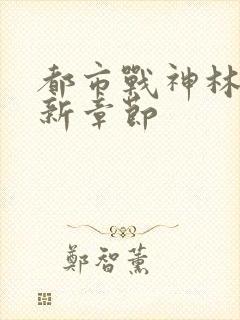 都市戰神林
新章節
鄭智薰